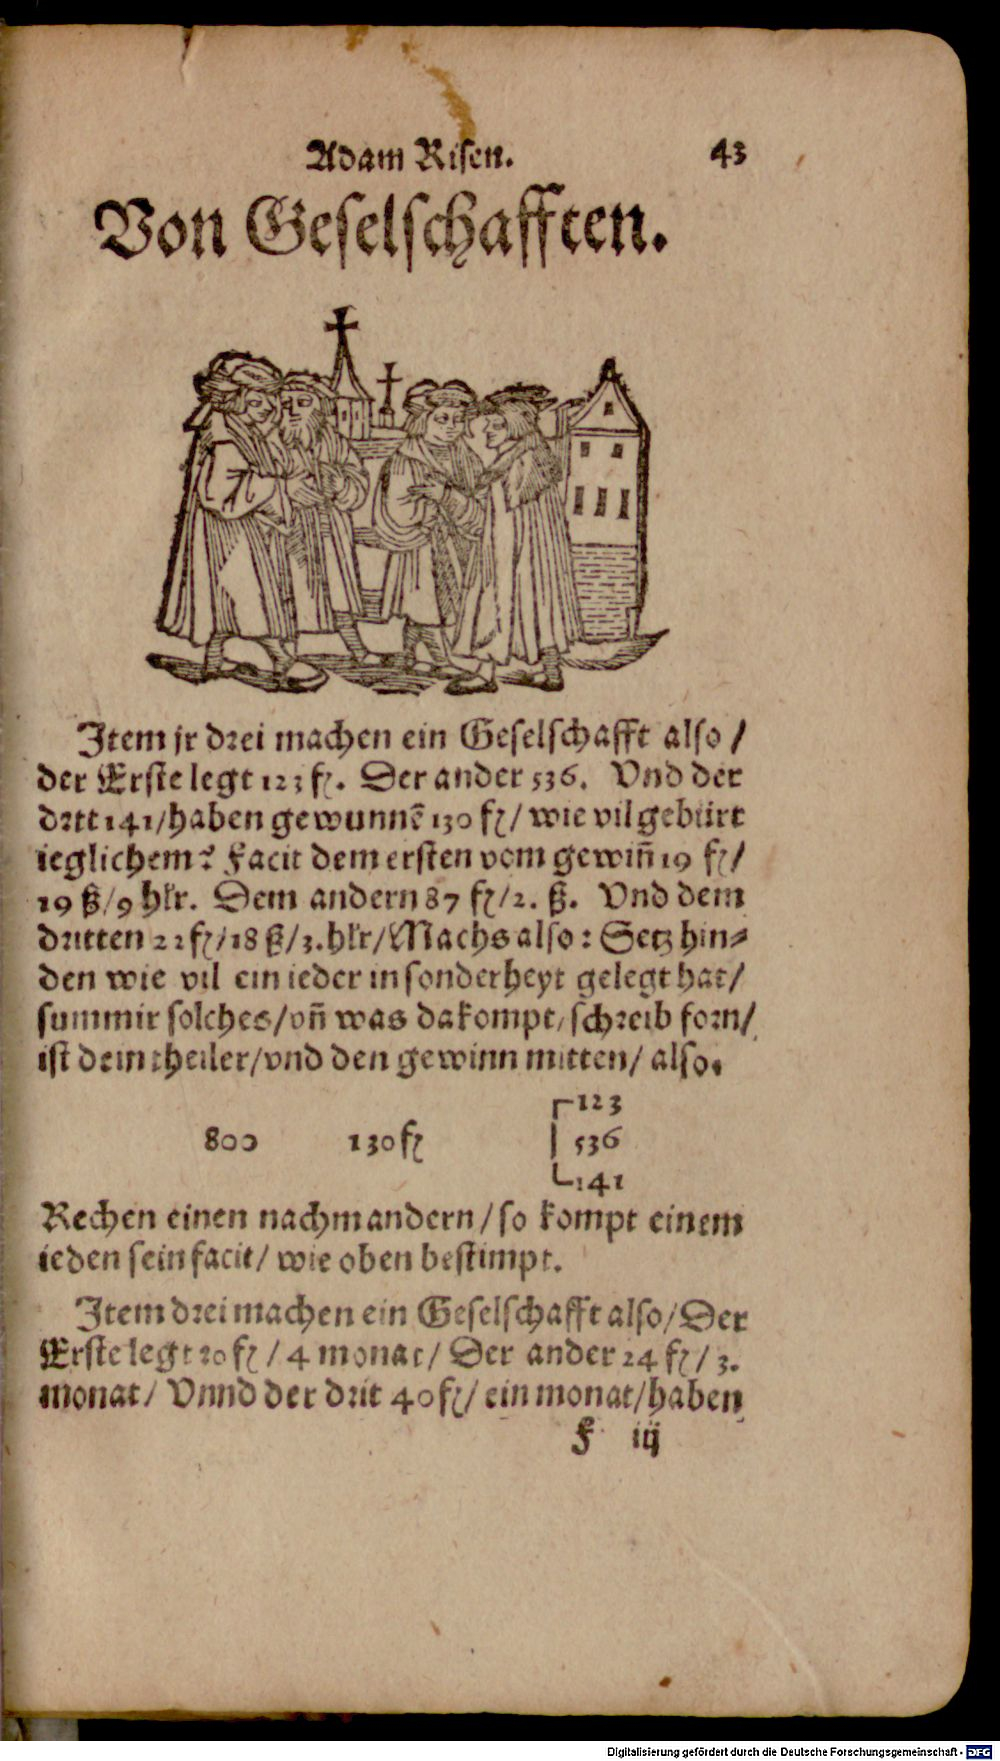 Adam Risen. 43
Von Geselschafften.
Item jr drei machen ein Geselschafft also /
der Erste legt 123 fl. Der ander 536. Vnd der
dritt 141/haben gewunnē 130 fl/ wie vil gebürt
ieglichem? Facit dem ersten vom gewiñ 19 fl/
19 ß/9 hlr. Dem andern 87 fl/2. ß. Vnd dem
dritten 22 fl/18 ß/3. hlr/Machs also: Setz hin⸗
den wie vil ein ieder in sonderheyt gelegt hat/
summir solches/vñ was da kompt, schreib forn/
ist dein theiler/vnd den gewinn mitten/ also.
123
800 130 fl 536
141
Rechen einen nachm andern/ so kompt einem
ieden sein facit/ wie oben bestimpt.
Item drei machen ein Geselschafft also/Der
Erste legt 20 fl / 4 monat/ Der ander 24 fl/ 3.
monat/ Vnnd der drit 40 fl/ ein monat/haben
F iij
Digitalisierung gefördert durch die Deutsche Forschungsgemeinschaft - DFG